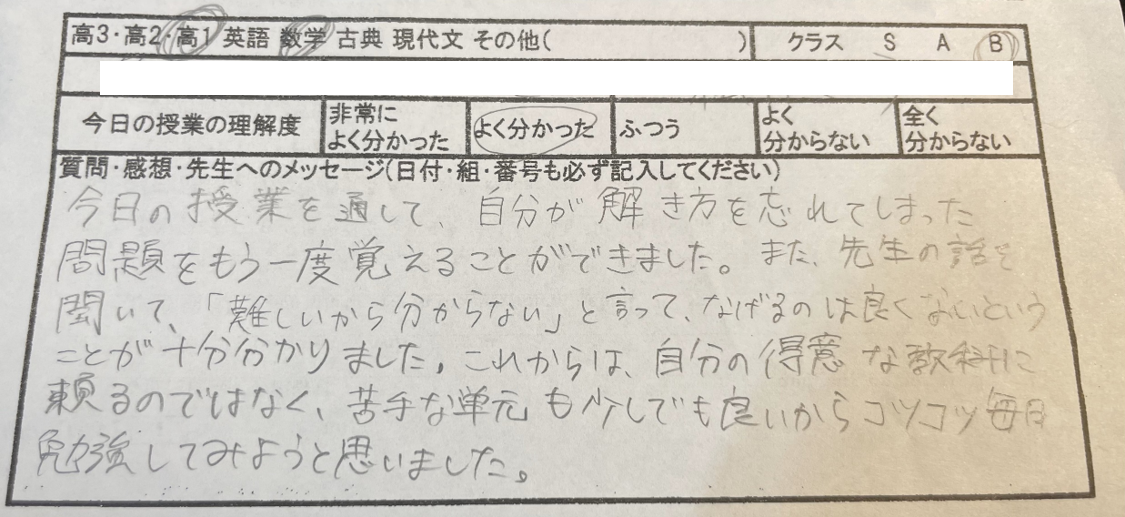 高3・高2・高1 英語 数学 古典 現代文 その他( ) クラス S A B
今日の授業の理解度 非常によく分かった よく分かった ふつう よく分からない 全く分からない
質問・感想・先生へのメッセージ(日付・組・番号も必ず記入してください)
今日の授業を通して、自分が解き方を忘れてしまった
問題をもう一度覚えることができました。また、先生の話を
聞いて、「難しいから分からない」と言って、なげるのは良くないという
ことが十分分かりました。これからは、自分の得意な教科に
頼るのではなく、苦手な単元も少しでも良いからコツコツ毎日
勉強してみようと思いました。